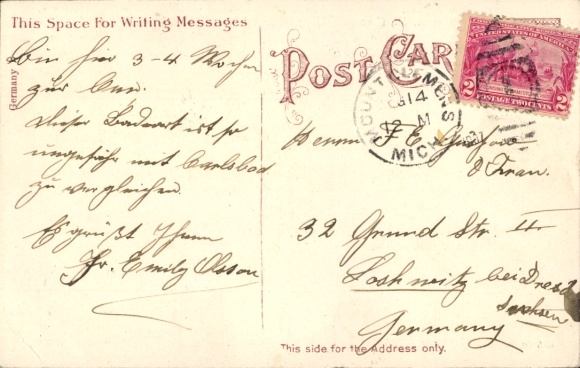 This Space For Writing Messages
Bin hier 3-4 Wochen
zur Cur.
Dieser Badeort ist so
ungefähr mit Carlsbad
zu vergleichen.
Es grüßt Ihnen
Fr. Emily Olsson
Germany
POST CARD
MOUNT CLEMENS
MICH
14
12 M
UNITED STATES OF AMERICA
2 2
POSTAGE TWO CENTS
Herrn F. E.
& Frau.
32 Grund Str. II
Loshwitz bei Dresd
Sachsen
Germany
This side for the Address only.